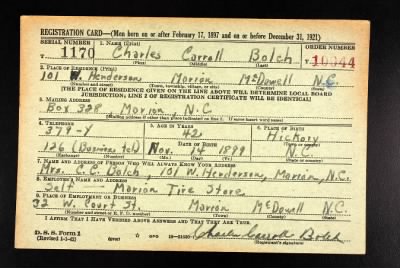 REGISTRATION CARD—(Men born on or after February 17, 1897 and on or before December 31, 1921)
SERIAL NUMBER 1. NAME (Print) ORDER NUMBER
1170 Charles Carroll Bolch 10044
(First) (Middle) (Last)
2. PLACE OF RESIDENCE (Print)
101 W. Henderson Marion McDowell N.C.
(Number and street) (Town, township, village, or city) (County) (State)
[THE PLACE OF RESIDENCE GIVEN ON THE LINE ABOVE WILL DETERMINE LOCAL BOARD
JURISDICTION; LINE 2 OF REGISTRATION CERTIFICATE WILL BE IDENTICAL]
3. MAILING ADDRESS
Box 328 Marion N.C
[Mailing address if other than place indicated on line 2. If same insert word same]
4. TELEPHONE 5. AGE IN YEARS 6. PLACE OF BIRTH
379-Y 42 Hickory
DATE OF BIRTH (Town or county)
126 (Business tel) Nov. 14 1899 N.C.
(Exchange) (Number) (Mo.) (Day) (Yr.) (State or country)
7. NAME AND ADDRESS OF PERSON WHO WILL ALWAYS KNOW YOUR ADDRESS
Mrs. C.C. Bolch, 101 W. Henderson, Marion, N.C.
8. EMPLOYER'S NAME AND ADDRESS
Self — Marion Tire Store
9. PLACE OF EMPLOYMENT OR BUSINESS
32 W. Court St. Marion McDowell N.C.
(Number and street or R. F. D. number) (Town) (County) (State)
I AFFIRM THAT I HAVE VERIFIED ABOVE ANSWERS AND THAT THEY ARE TRUE.
D. S. S. Form 1
(Revised 1-1-42) (over) Charles Carroll Bolch
(Registrant's signature)